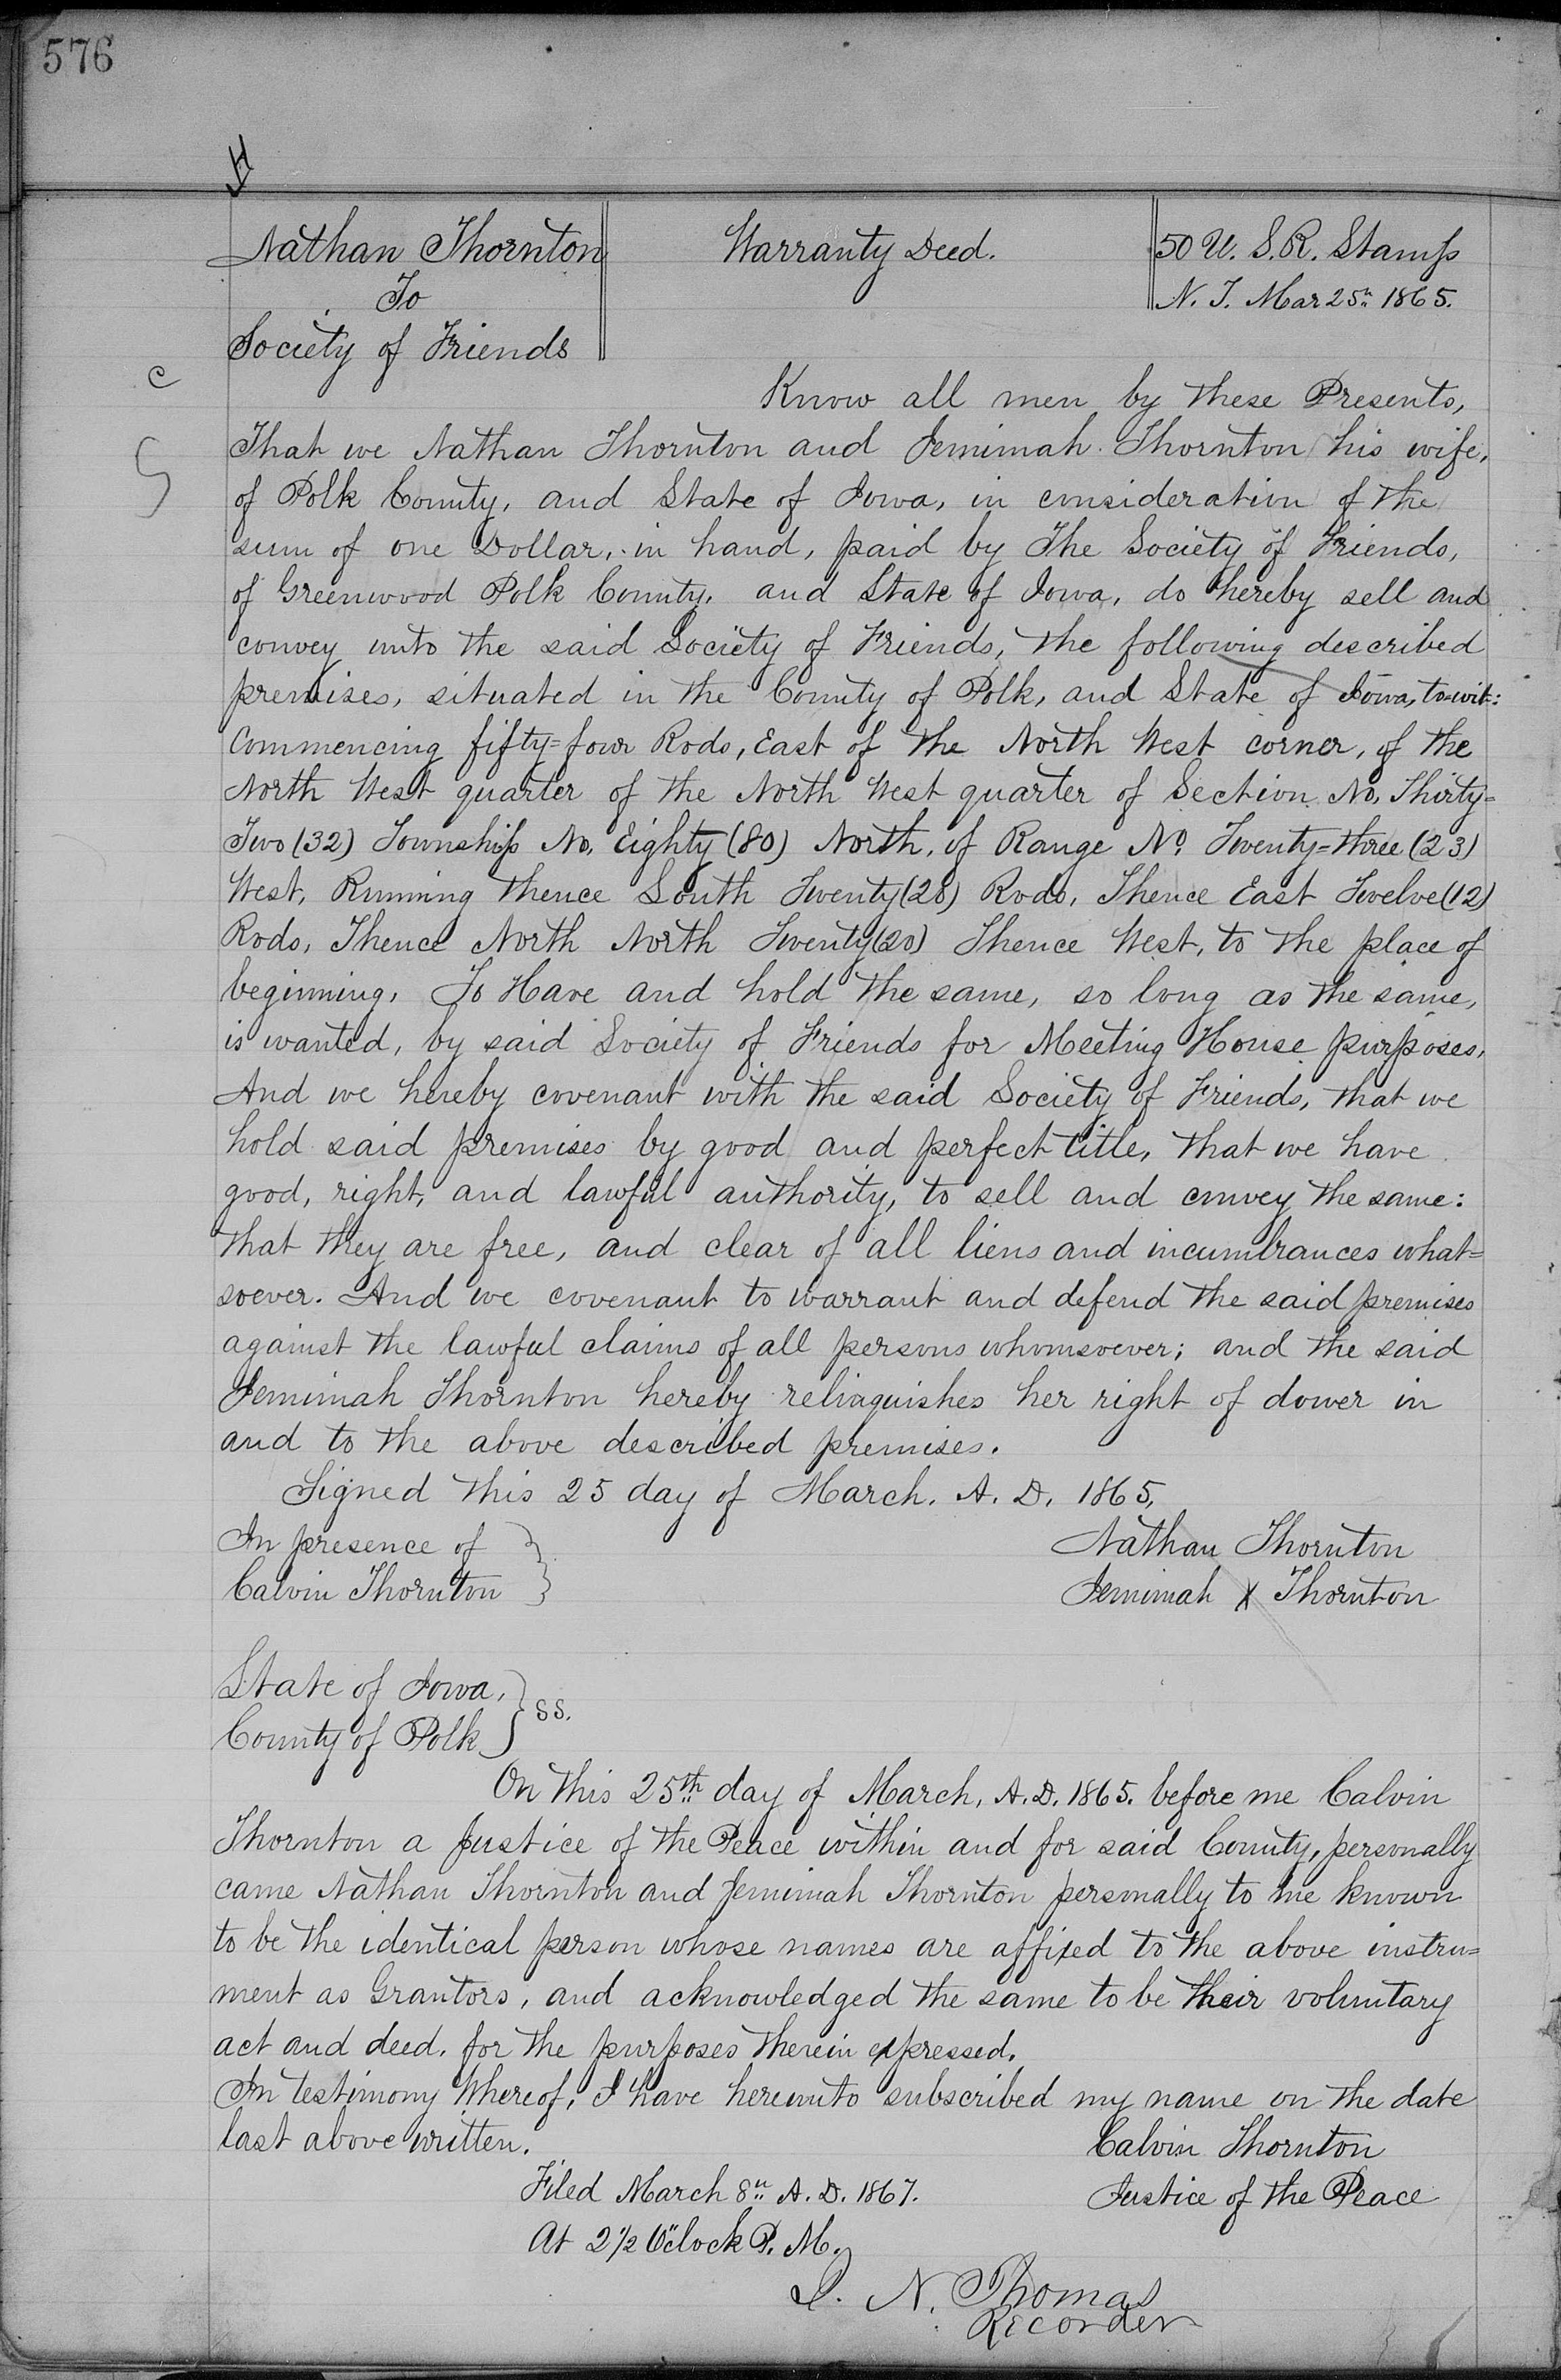 576
H
Nathan Thornton
To
Society of Friends
Warranty Deed.
50 U. S. R. Stamp
N. T. Mar 25th 1865.
c
Know all men by these Presents,
That we Nathan Thornton and Jemimah Thornton his wife,
of Polk County, and State of Iowa, in consideration of the
sum of one Dollar, in hand, paid by The Society of Friends,
of Greenwood Polk County, and State of Iowa, do hereby sell and
convey unto the said Society of Friends, the following described
premises, situated in the County of Polk, and State of Iowa, to=wit:
Commencing fifty=four Rods, East of the North West corner, of the
North West quarter of the North West quarter of Section No. Thirty=
Two (32) Township No. Eighty (80) North, of Range No. Twenty=three (23)
West, Running thence South Twenty (20) Rods, Thence East Twelve (12)
Rods, Thence North North Twenty (20) Thence West, to the place of
beginning, To Have and hold the same, so long as the same,
is wanted, by said Society of Friends for Meeting House purposes,
And we hereby covenant with the said Society of Friends, that we
hold said premises by good and perfect title, that we have
good, right, and lawful authority, to sell and convey the same:
that they are free, and clear of all liens and incumbrances what=
soever. And we covenant to warrant and defend the said premises
against the lawful claims of all persons whomsoever; and the said
Jemimah Thornton hereby relinquishes her right of dower in
and to the above described premises.
Signed this 25 day of March. A. D. 1865,
In presence of
Calvin Thornton
Nathan Thornton
Jemimah X Thornton
State of Iowa,
County of Polk } SS.
On this 25th day of March, A. D. 1865. before me Calvin
Thornton a Justice of the Peace within and for said County, personally
came Nathan Thornton and Jemimah Thornton personally to me known
to be the identical person whose names are affixed to the above instru=
ment as Grantors, and acknowledged the same to be their voluntary
act and deed, for the purposes therein expressed.
In testimony Whereof, I have hereunto subscribed my name on the date
last above written.
Calvin Thornton
Justice of the Peace
Filed March 8th A. D. 1867.
At 2 1/2 O"clock P. M.
N. Thomas
Recorder